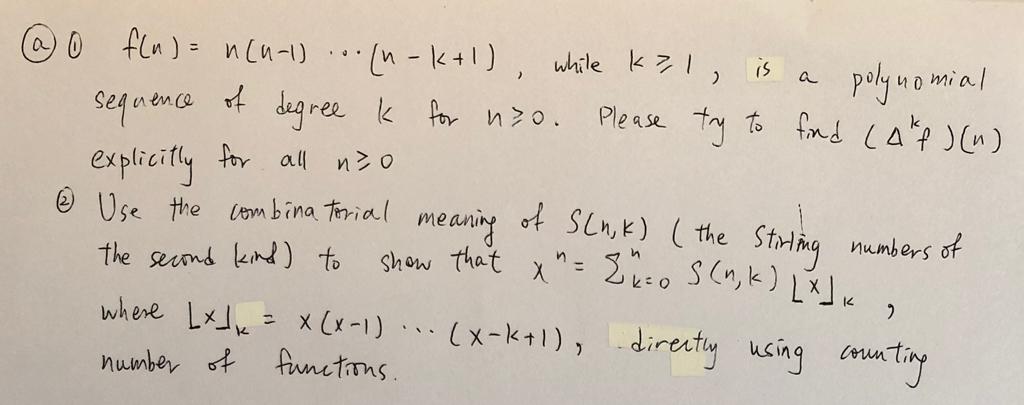 ⓐ ① f(n) = n(n-1) ... (n-k+1), while k ≥ 1, is a polynomial
sequence of degree k for n ≥ 0. Please try to find (Δ^k f)(n)
explicitly for all n ≥ 0
② Use the combinatorial meaning of S(n,k) (the Stirling numbers of
the second kind) to show that x^n = Σ_{k=0}^n S(n,k) ⌊x⌋_k,
where ⌊x⌋_k = x(x-1) ... (x-k+1), directly using counting
number of functions.